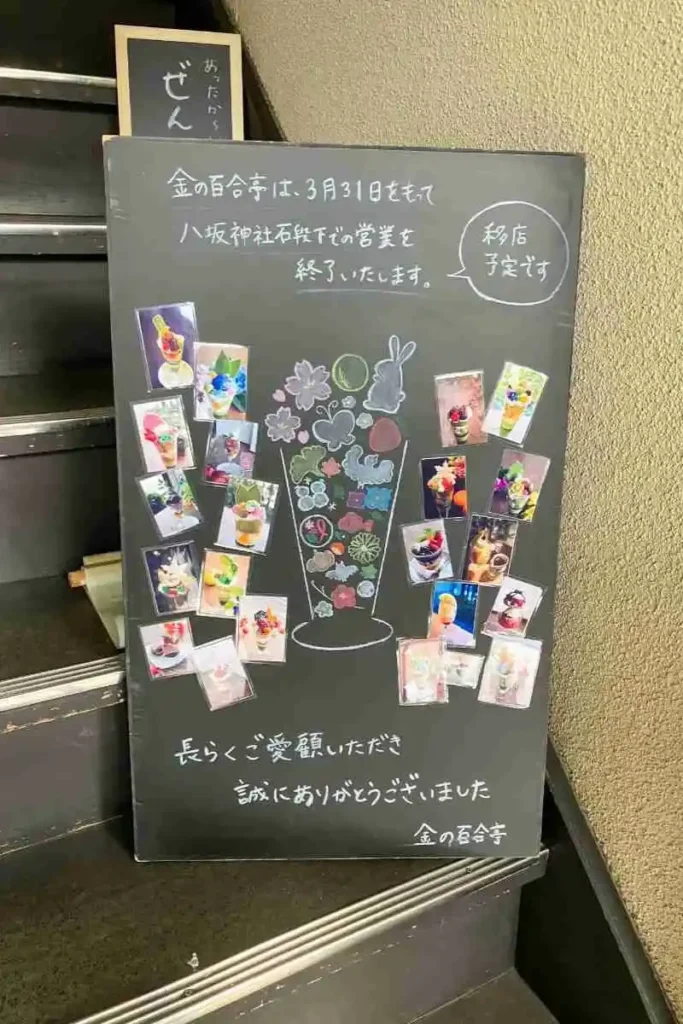 あったか〜い
ぜん
金の百合亭は、3月31日をもって
八坂神社石段下での営業を
終了いたします。
移店
予定です
長らくご愛顧いただき
誠にありがとうございました
金の百合亭